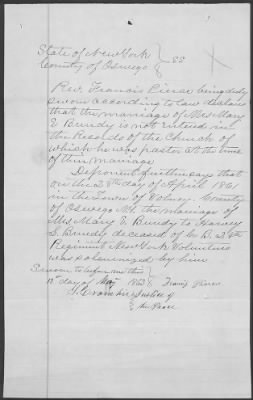 State of New York } SS
County of Oswego }
Rev. Francis Pierce being duly
sworn according to law declares
that the marriage of Mrs Mary
E Bundy is not entered in
the Records of the Church of
which he was pastor at the time
of their marriage
Deponent further says that
on the day of April 1861
in the Town of Volney County
of Oswego NY the marriage of
Mrs Mary E Bundy to Harvey
S. Bundy deceased of Co. D. 24th
Regiment New York Volunteers
was solemnized by him
Sworn to before me this }
12 day of May 1863 } Francis Pierce
Justice of
the Peace